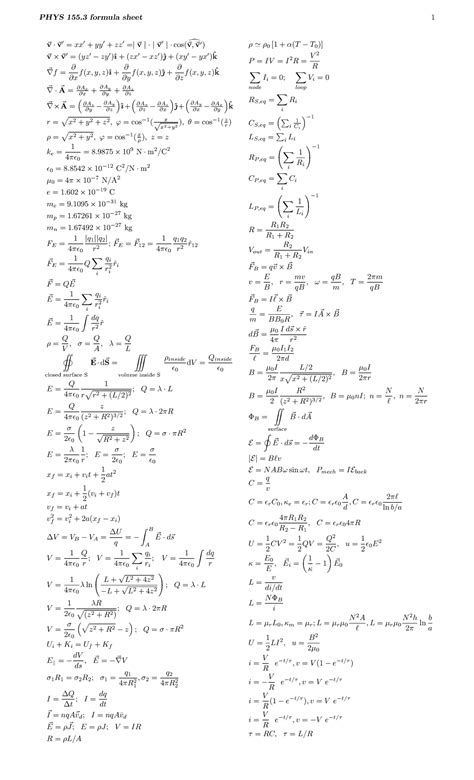 PHYS 155.3 formula sheet 1
v⃗ · v⃗′ = xx′ + yy′ + zz′ =| v⃗ | · | v⃗′ | · cos(v⃗, v⃗′)
v⃗ × v⃗′ = (yz′ − y′z)î + (zx′ − xz′)ĵ + (xy′ − yx′)k̂
∇⃗f = ∂/∂x f(x, y, z)î + ∂/∂y f(x, y, z)ĵ + ∂/∂z f(x, y, z)k̂
∇⃗ · A⃗ = ∂Aₓ/∂x + ∂A_y/∂y + ∂A_z/∂z
∇⃗ × A⃗ = (∂A_z/∂y − ∂A_y/∂z)î + (∂Aₓ/∂z − ∂A_z/∂x)ĵ + (∂A_y/∂x − ∂Aₓ/∂y)k̂
r = √(x² + y² + z²), φ = cos⁻¹(x/√(x²+y²)), θ = cos⁻¹(z/r)
ρ = √(x² + y²), φ = cos⁻¹(x/ρ), z = z
k_e = 1/4πϵ₀ = 8.9875 × 10⁹ N · m²/C²
ϵ₀ = 8.8542 × 10⁻¹² C²/N · m²
μ₀ = 4π × 10⁻⁷ N/A²
e = 1.602 × 10⁻¹⁹ C
m_e = 9.1095 × 10⁻³¹ kg
m_p = 1.67261 × 10⁻²⁷ kg
m_n = 1.67492 × 10⁻²⁷ kg
F_E = 1/4πϵ₀ |q₁||q₂|/r²; F⃗_E = F⃗₁₂ = 1/4πϵ₀ q₁q₂/r² r̂₁₂
F⃗_E = 1/4πϵ₀ Q ∑ᵢ qᵢ/rᵢ² r̂ᵢ
F⃗ = QE⃗
E⃗ = 1/4πϵ₀ ∑ᵢ qᵢ/rᵢ² r̂ᵢ
E⃗ = 1/4πϵ₀ ∫ dq/r² r̂
ρ = Q/V, σ = Q/A, λ = Q/L
∯ E⃗ · dS⃗ = ∭ ρ_inside/ϵ₀ dV = Q_inside/ϵ₀
closed surface S volume inside S
E = Q/4πϵ₀ 1/(r√(r² + (L/2)²)); Q = λ · L
E = Q/4πϵ₀ z/(z² + R²)^{3/2}; Q = λ · 2πR
E = σ/2ϵ₀ (1 − z/√(R² + z²)); Q = σ · πR²
E = 1/2πϵ₀ λ/r; E = σ/2ϵ₀; E = σ/ϵ₀
x_f = xᵢ + vᵢt + 1/2 at²
x_f = xᵢ + 1/2 (vᵢ + v_f)t
v_f = vᵢ + at
v_f² = vᵢ² + 2a(x_f − xᵢ)
ΔV = V_B − V_A = ΔU/q = − ∫_A^B E⃗ · ds⃗
V = 1/4πϵ₀ Q/r; V = 1/4πϵ₀ ∑ᵢ qᵢ/rᵢ; V = 1/4πϵ₀ ∫ dq/r
V = 1/4πϵ₀ λ ln((L + √(L² + 4z²))/(−L + √(L² + 4z²))); Q = λ · L
V = 1/2ϵ₀ λR/√(z² + R²); Q = λ · 2πR
V = σ/2ϵ₀ (√(z² + R²) − z); Q = σ · πR²
Uᵢ + Kᵢ = U_f + K_f
E_| = −dV/ds, E⃗ = −∇⃗V
σ₁R₁ = σ₂R₂; σ₁ = q₁/4πR₁², σ₂ = q₂/4πR₂²
I = ΔQ/Δt; I = dq/dt
I⃗ = nqAv⃗_d; I = nqAv̄_d
E⃗ = ρJ⃗; E = ρJ; V = IR
R = ρL/A
ρ ≃ ρ₀ [1 + α(T − T₀)]
P = IV = I²R = V²/R
∑ Iᵢ = 0; ∑ Vᵢ = 0
node loop
R_{S,eq} = ∑ᵢ Rᵢ
C_{S,eq} = (∑ᵢ 1/Cᵢ)⁻¹
L_{S,eq} = ∑ᵢ Lᵢ
R_{P,eq} = (∑ᵢ 1/Rᵢ)⁻¹
C_{P,eq} = ∑ᵢ Cᵢ
L_{P,eq} = (∑ᵢ 1/Lᵢ)⁻¹
R = R₁R₂/(R₁ + R₂)
V_out = R₂/(R₁ + R₂) V_in
F⃗_B = qv⃗ × B⃗
v = E/B, r = mv/qB, ω = qB/m, T = 2πm/qB
F⃗_B = Iℓ⃗ × B⃗
q/m = E/BB₀R, τ⃗ = IA⃗ × B⃗
dB⃗ = μ₀/4π I ds⃗ × r̂/r²
F_B/ℓ = μ₀I₁I₂/2πd
B = μ₀I/2π L/2/(x√(x² + (L/2)²)), B = μ₀I/2πr
B = μ₀I/2 R²/(z² + R²)^{3/2}, B = μ₀nI; n = N/ℓ, n = N/2πr
Φ_B = ∬ B⃗ · dA⃗
surface
ℰ = ∮ E⃗ · ds⃗ = −dΦ_B/dt
|ℰ| = Bℓv
ℰ = NABω sin ωt, P_mech = Iℰ_back
C = q/v
C = ϵ_rC₀, κ_e = ϵ_r; C = ϵ_rϵ₀ A/d, C = ϵ_rϵ₀ 2πℓ/ln b/a
C = ϵ_rϵ₀ 4πR₁R₂/(R₂ − R₁), C = ϵ_rϵ₀4πR
U = 1/2 CV² = 1/2 QV = Q²/2C, u = 1/2 ϵ₀E²
κ = E₀/E, E⃗ᵢ = (1/κ − 1) E⃗₀
L = v/di/dt
L = NΦ_B/i
L = μ_rL₀, κ_m = μ_r; L = μ_rμ₀ N²A/ℓ, L = μ_rμ₀ N²h/2π ln b/a
U = 1/2 LI², u = B²/2μ₀
i = V/R e^{−t/τ}, v = V(1 − e^{−t/τ})
i = −V/R e^{−t/τ}, v = V e^{−t/τ}
i = V/R (1 − e^{−t/τ}), v = V e^{−t/τ}
i = V/R e^{−t/τ}, v = −V e^{−t/τ}
τ = RC, τ = L/R